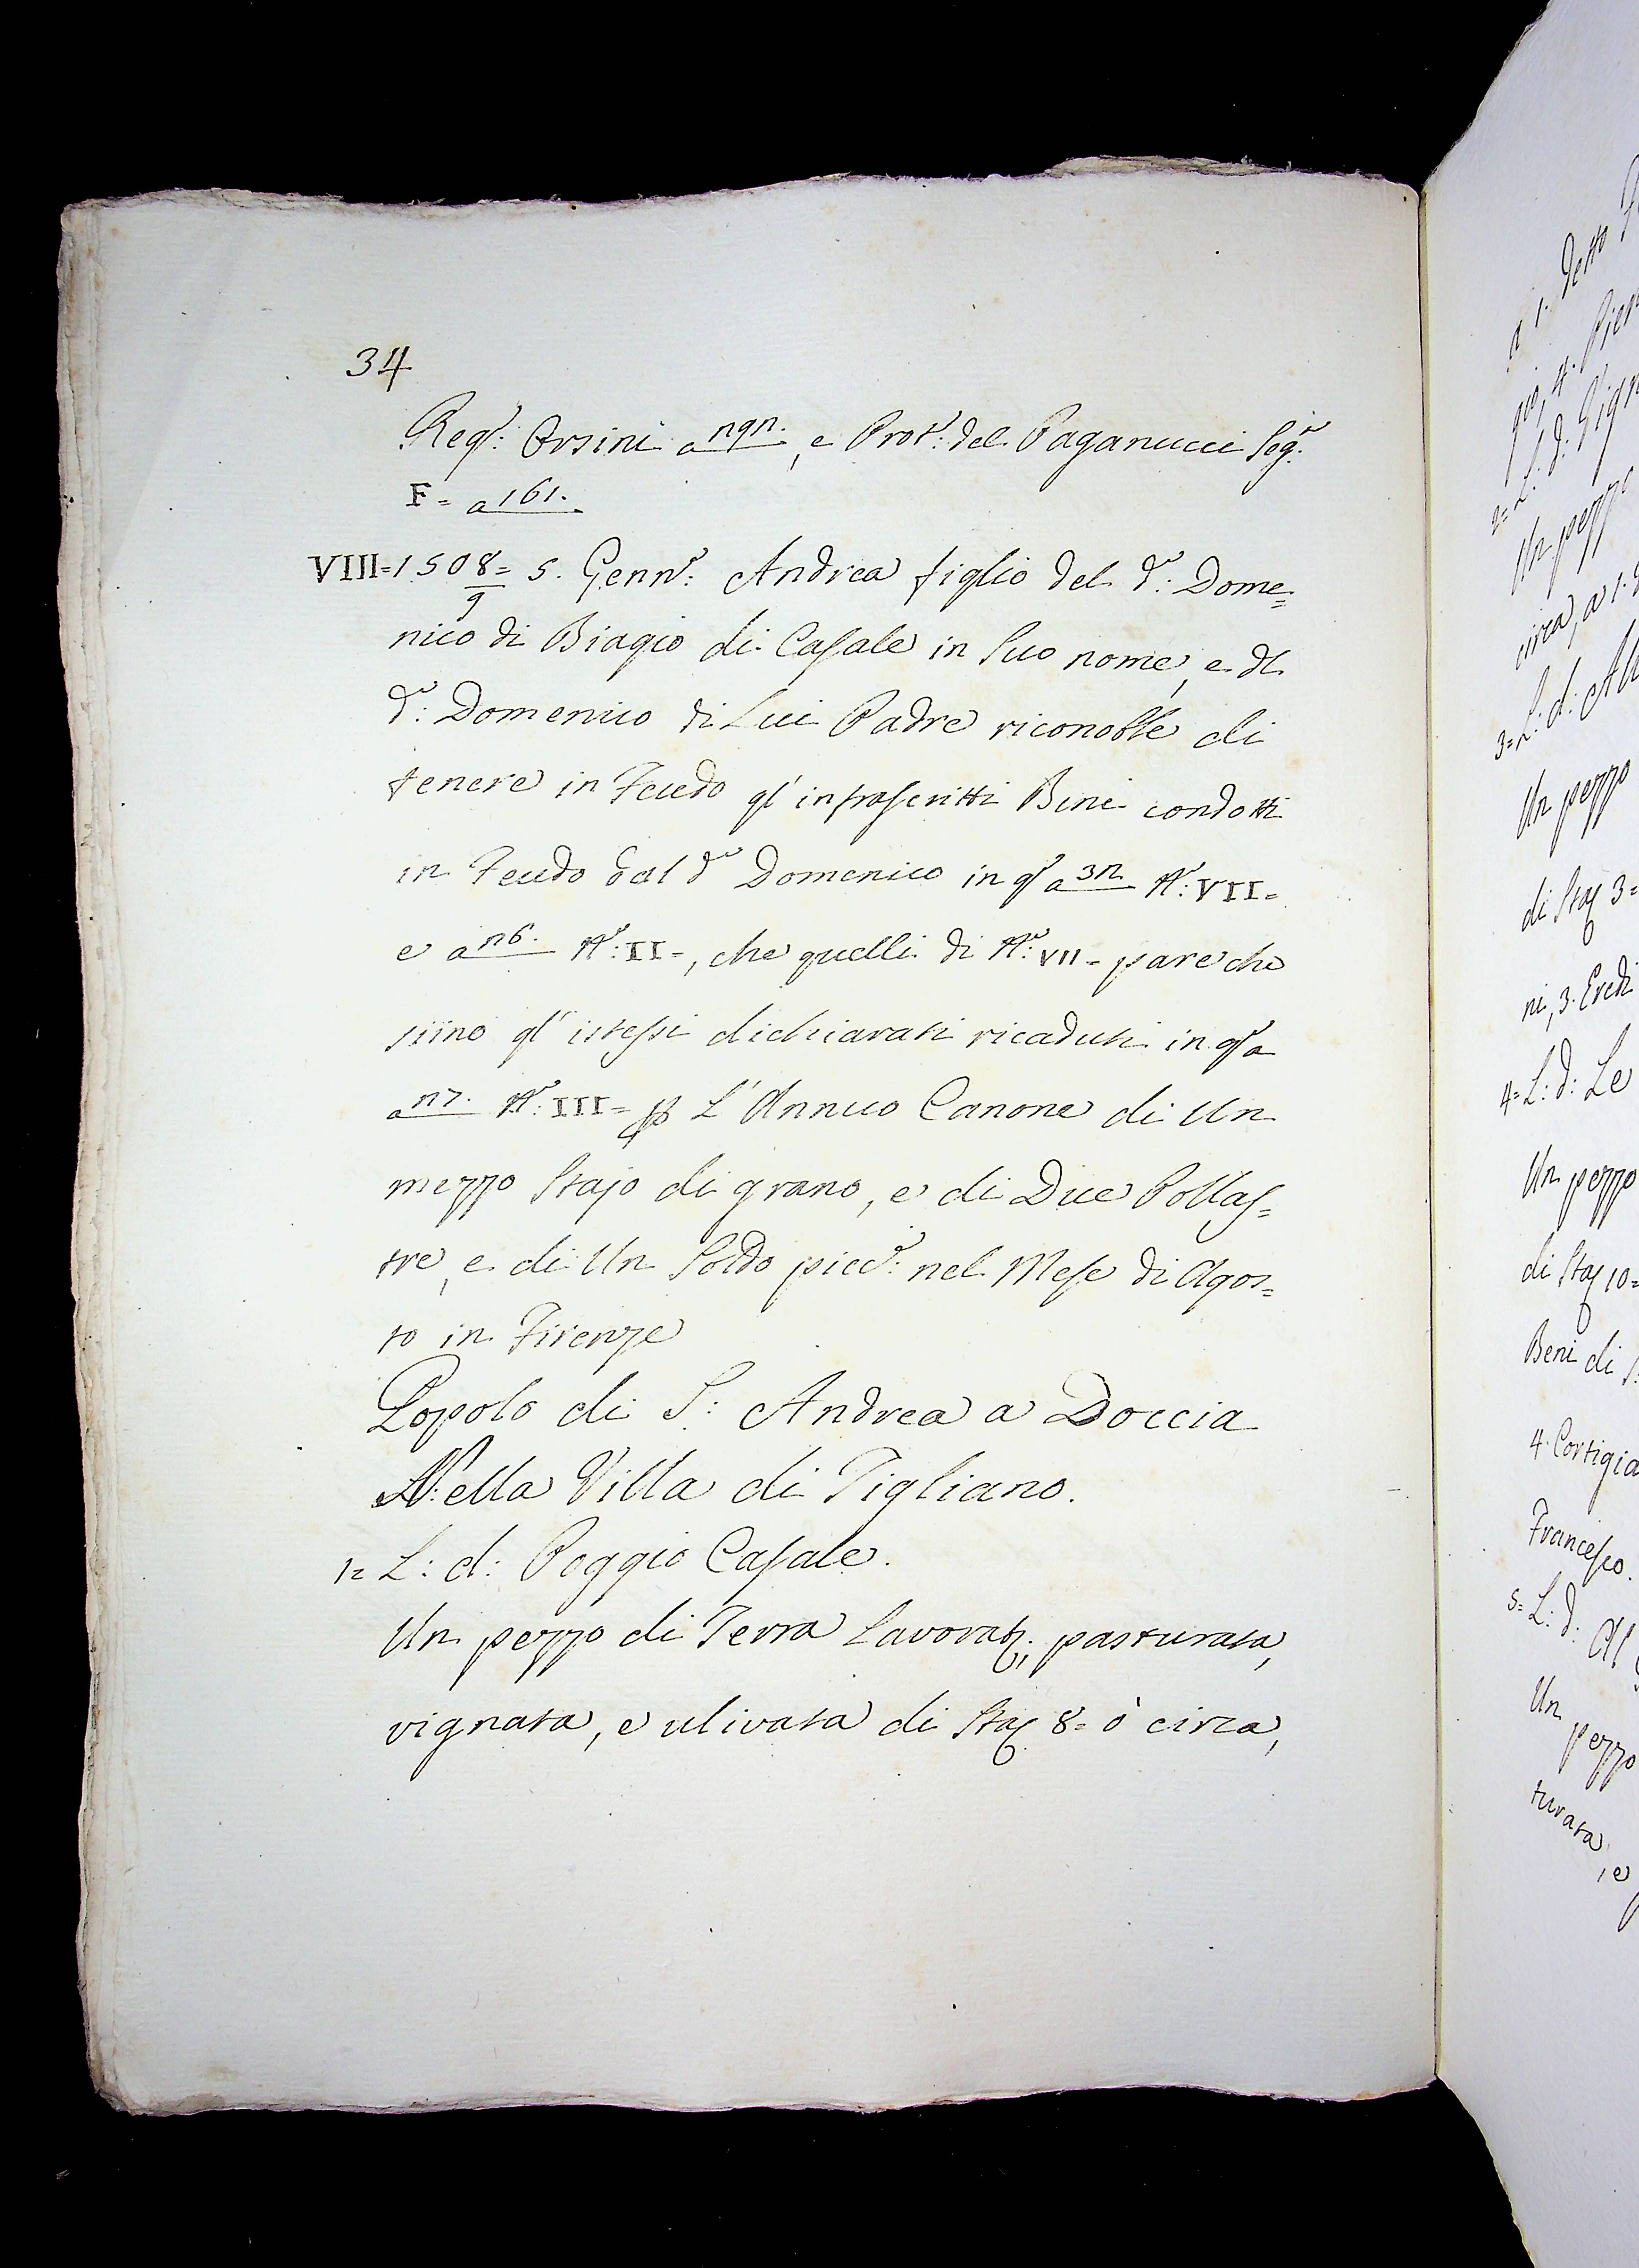 34
Regᵒ: Orsini a nqn., e Protᵒ: del Paganucci Segᵒ:
F= a 161.
VIII=1508= 5. Gennᵒ: Andrea figlio del dᵒ: Dome=
9
nico di Biagio di Casale in Suo nome, e dl
dᵒ: Domenico di Lui Padre riconobbe di
tenere in Feudo gl' infrascritti Beni condotti
in Feudo dal dᵒ Domenico in qᵒ a 3n Nᵒ: VII=
e a n6. Nᵒ: II=, che quelli di Nᵒ: VII= pare che
siino gl' istessi dichiarati ricaduti in qᵒ a
a n7. Nᵒ: III= p L' Annuo Canone di Un
mezzo Stajo di grano, e di Due Pollas=
tre, e di Un Soldo piccᵒ: nel Mese di Agos=
to in Firenze
Popolo di S: Andrea a Doccia
Nella Villa di Tigliano.
1= L: d: Poggio Casale.
Un pezzo di Terra Lavoratᵃ; pasturata,
vignata, e ulivata di Staj 8= ò circa,
a 1. Detto
gio, 4. Pier
2= L: d: Vign
Un pezzo
circa, a 1.
3= L: d: Al
Un pezzo
di Staj 3=
ni, 3. Eredi
4= L: d: Le
Un pezzo
di Staj 10=
Beni di S:
4. Cortigia
Francesco.
5= L: d: Al
Un pezzo
turata, e